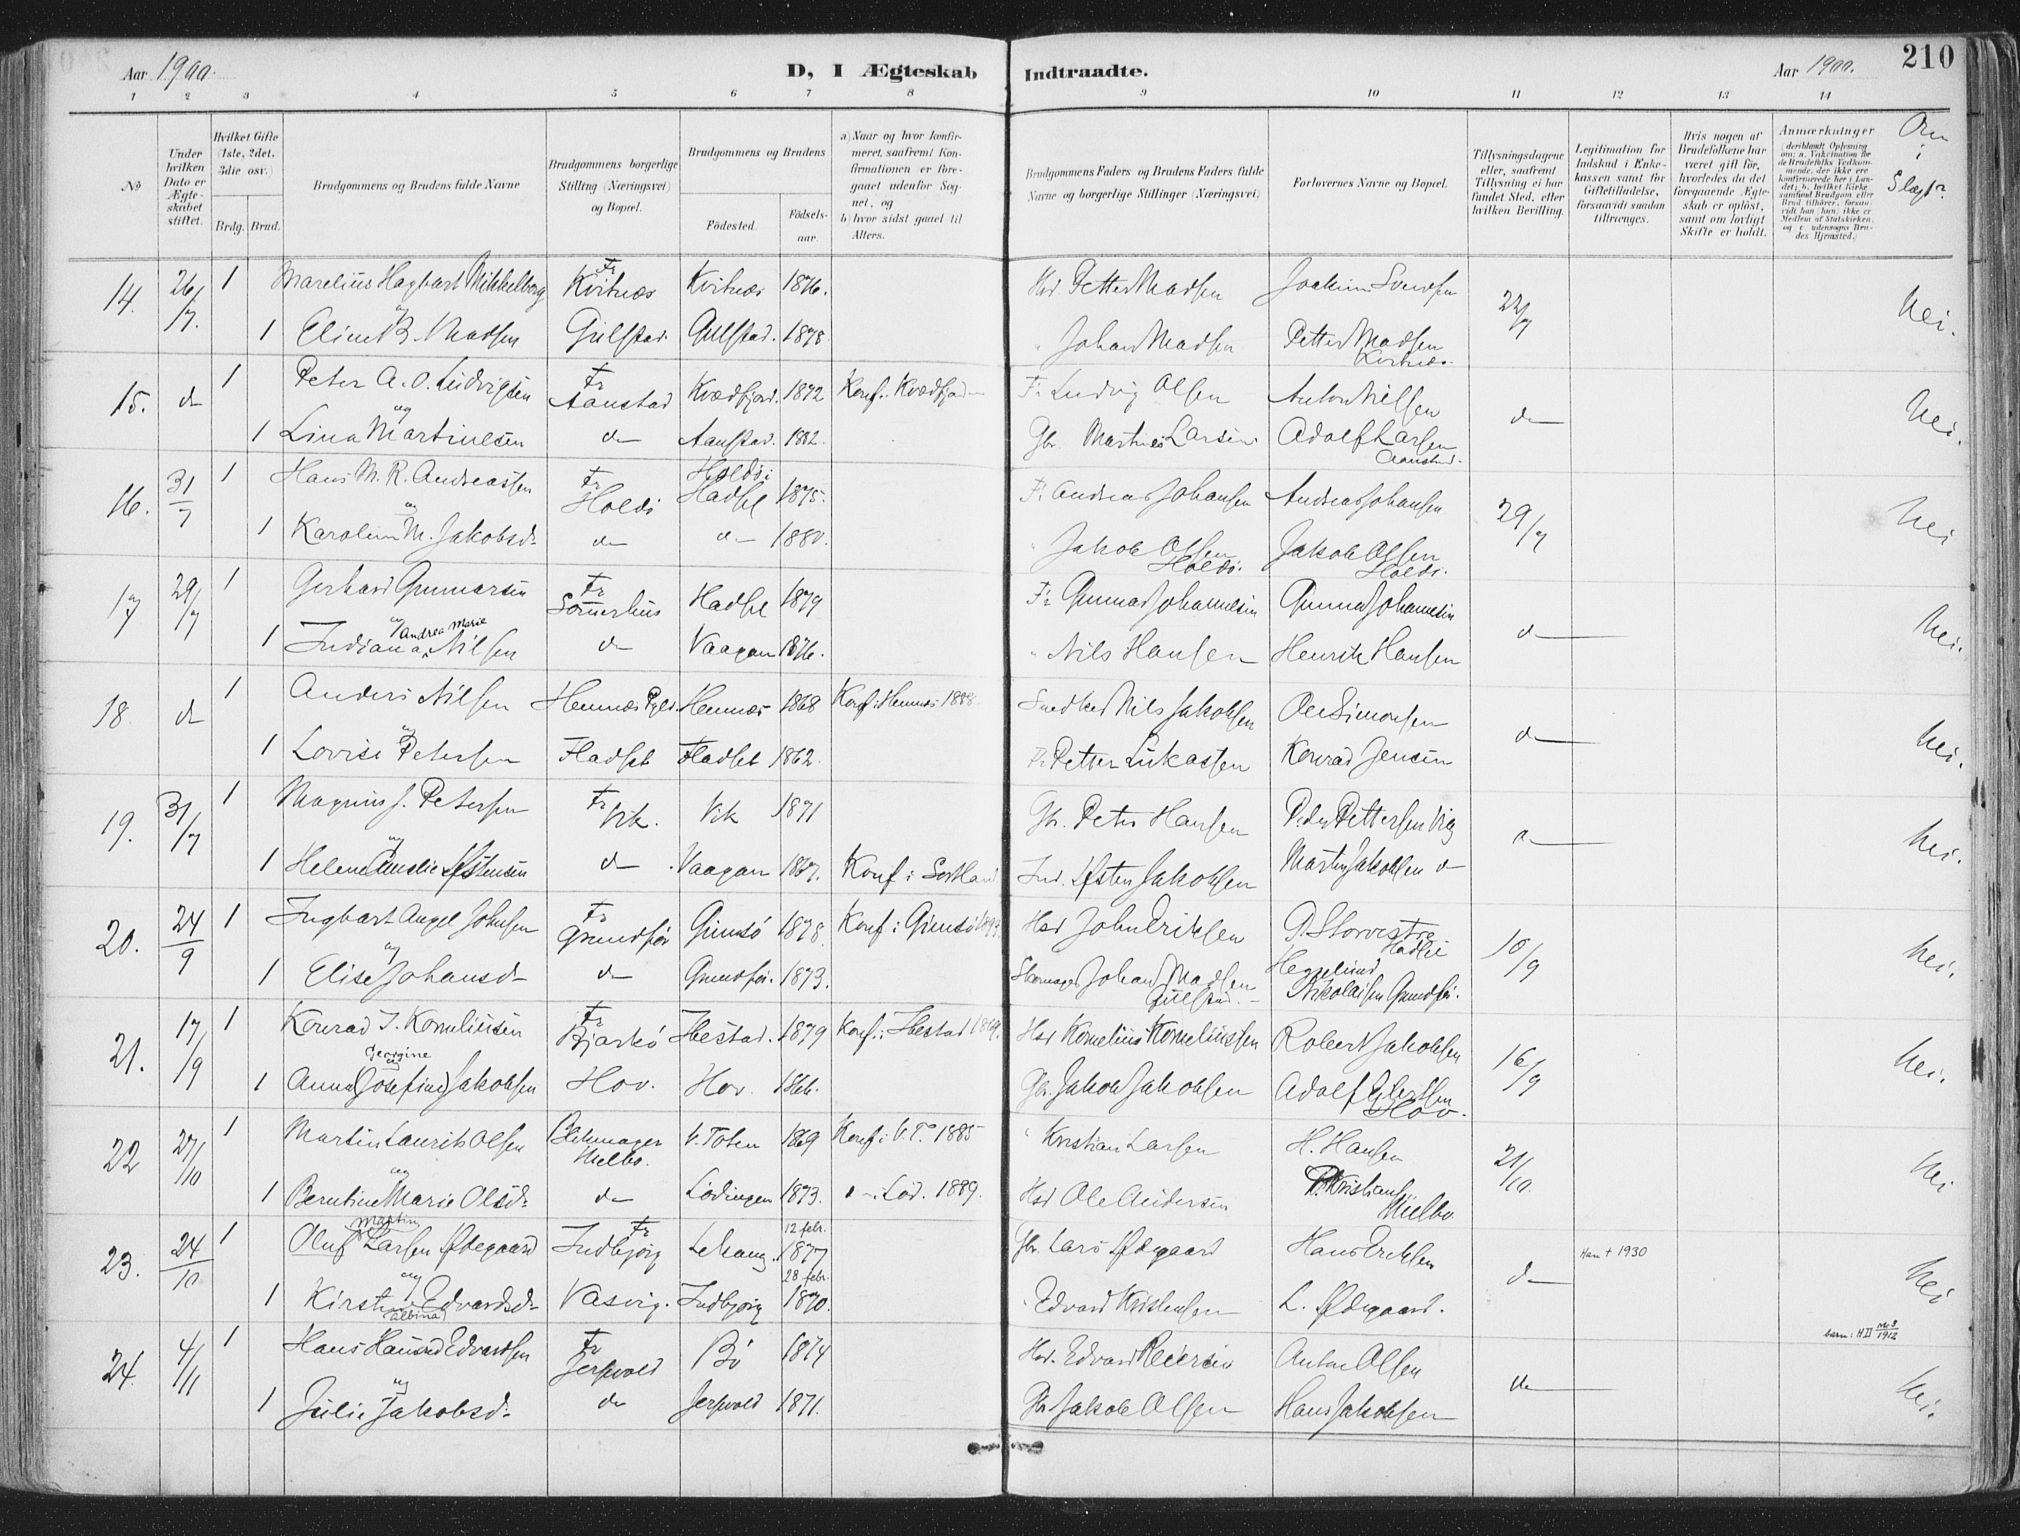 210
Aar 1900.
D, I Ægteskab
Indtraadte.
Aar 1900.
1 2 3 4 5 6 7 8 9 10 11 12 13 14
No
Under hvilken Dato er Ægteskabet stiftet.
Hvilket Gifte (1ste, 2det, 3die osv.)
Brdg. Brud.
Brudgommens og Brudens fulde Navne
Brudgommens borgerlige Stilling (Næringsvei) og Bopæl.
Brudgommens og Brudens
Fødested.
Fødselsaar.
a) Naar og hvor konfirmeret, saafremt Konfirmationen er foregaaet udenfor Sognet, og
b) hvor sidst gaaet til Alters.
Brudgommens Faders og Brudens Faders fulde Navne og borgerlige Stillinger (Næringsvei)
Forlovernes Navne og Bopæl.
Tillysningsdagene eller, saafremt Tillysning ei har fundet Sted, efter hvilken Bevilling.
Legitimation for Indskud i Enkekassen samt for Giftetilladelse, forsaavidt saadan tiltrænges.
Hvis nogen af Brudefolkene har været gift før, hvorledes da det foregaaende Ægteskab er opløst, samt om lovligt Skifte er holdt.
Anmærkninger
Om i Slægt?
14. 26/7. 1 Marelius Hagbart Mikkelborg Fr Kvitnæs Kvitnæs 1876. Hsd Petter Madsen Joakim Svendsen 22/7 Nei.
1 Eline B. Madsen Gulstad. Gulstad. 1878. " Johan Madsen Petter Madsen Kvitnæs.
15. do 1 Peter A. O. Ludvigsen Fr Aanstad Kvædfjord. 1872 Konf. Kvædfjord F. Ludvig Olsen Anton Nilsen do Nei.
og
1 Lina Martinesen do Aanstad. 1882. Gbr. Martines Larsen Adolf Larsen Aanstad.
16. 31/7 1 Hans M. R. Andreassen Fr Holdø Holdø i Hadsel 1875. F. Andreas Johansen Andreas Johansen 29/7 Nei
og
1 Karoline M. Jakobsd. do do 1880. " Jakob Olsen Holdø. Jakob Olsen Holdø.
17 29/7 1 Gerhard Gunnarsen Fr Sommerhus Hadsel 1879 F. Gunnar Johannesen Gunnar Johannesen do Nei.
og Andrea Marie
1 Indiana Nilsen do Vaagan 1876. " Nils Hansen Henrik Hansen
18. do 1 Anders Nilsen Hemnæs Pgld. Hemnæs 1868 Konf. i Hemnæs 1888. Snedker Nils Jakobsen Ole Simonsen do Nei.
og
1 Lovise Petersen Fladset Fladset 1862. Petter Lukassen Konrad Jensen
19. 31/7 1 Magnus J. Petersen Fr Vik. Vik 1871 Gbr. Peter Hansen Peder Pettersen Vig do Nei.
og
1 Helene Amalie Østensen do Vaagan 1867. Konf i Sortland Ind. Østen Jakobsen Martin Jakobsen do
20. 24/9 1 Ingbart Angel Johnsen Fr Grundfør Gimsø 1878. Konf i Gimsø Hsd John Eriksen 10/9 Nei.
og
1 Elise Johansd. do Grundfør. 1873. Skomager Johan Madsen Gulstad. Hegelund Nikolaisen Grundfør.
21. 17/9 1 Konrad J. Korneliussen Fr Bjarkø Ibestad. 1879 Konf. i Ibestad Hsd Kornelius Korneliussen Robert Jakobsen 16/9 Nei.
Georgine
og
1 Anna (Josefine) Jakobsen Hov. Hov. Gbr. Jakob Jakobsen Adolf Eilertsen Hov.
22 27/10 1 Martin Laurits Olsen Blikmager Melbo. V. Toten 1869 Konf i V. T. 1885 " Kristian Larsen H. Hansen 21/10. Nei
og
1 Berntine Marie Olsd. do Lødingen 1873. " i Lød. 1889. Hsd Ole Andersen P. Kristians. Melbo
23. 24/10 1 Oluf Martin Larsen Ødegaard Fr Indbjørg Lekang. 12 febr. 1877 Gbr. Lars Ødegaard Hans Eriksen do Han † 1930 Nei
og
1 Kirstine Albina Edvardsd. Vasvig. Indbjørg 28 febr. 1870. " Edvard Kristensen L. Ødegaard.
barn: H II No 3 1912
24. 4/11 1 Hans Hansed Edvardsen Fr Jerpvold Bø 1874 Hsd. Edvard Reiersen Anton Olsen do Nei.
og
1 Julie Jakobsd. do Jerpvold 1871. Jakob Olsen Hans Jakobsen